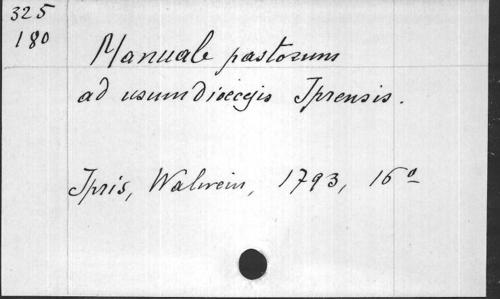 325
180
Manuale pastorum
ad usum diœcesis Iprensis.
Ipris, Walwein, 1793, 16°